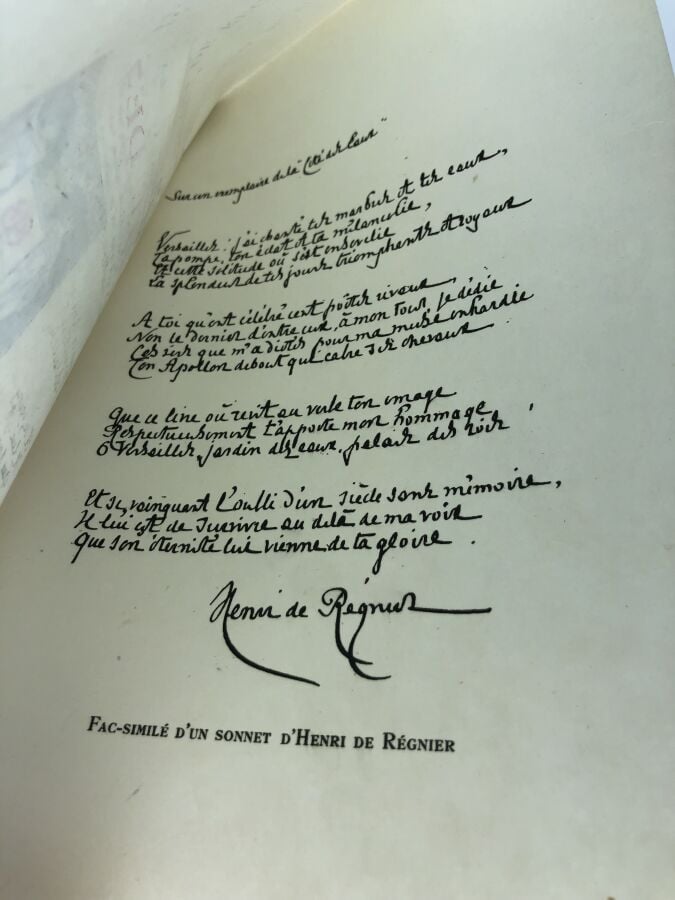 Sur un exemplaire de la "Cité des Eaux"
Versailles, j'ai chanté tes marbres et tes eaux,
Ta pompe, ton éclat et ta mélancolie,
Et cette solitude où s'est ensevelie
La splendeur de tes jours triomphants et royaux
A toi qu'ont célébré cent poètes rivaux,
Non le dernier d'entre eux, à mon tour, je dédie
Ces vers que m'a dictés pour ma muse enhardie
Ton Apollon debout qui cabre ses chevaux.
Que ce livre où revit au verbe ton image
Respectueusement t'apporte mon hommage
O Versailles, jardin des eaux, palais des rois !
Et si, vainquant l'oubli d'un siècle sans mémoire,
Il lui est de survivre au delà de ma voix
Que son éternité lui vienne de ta gloire.
Henri de Régnier
FAC-SIMILÉ D'UN SONNET D'HENRI DE RÉGNIER